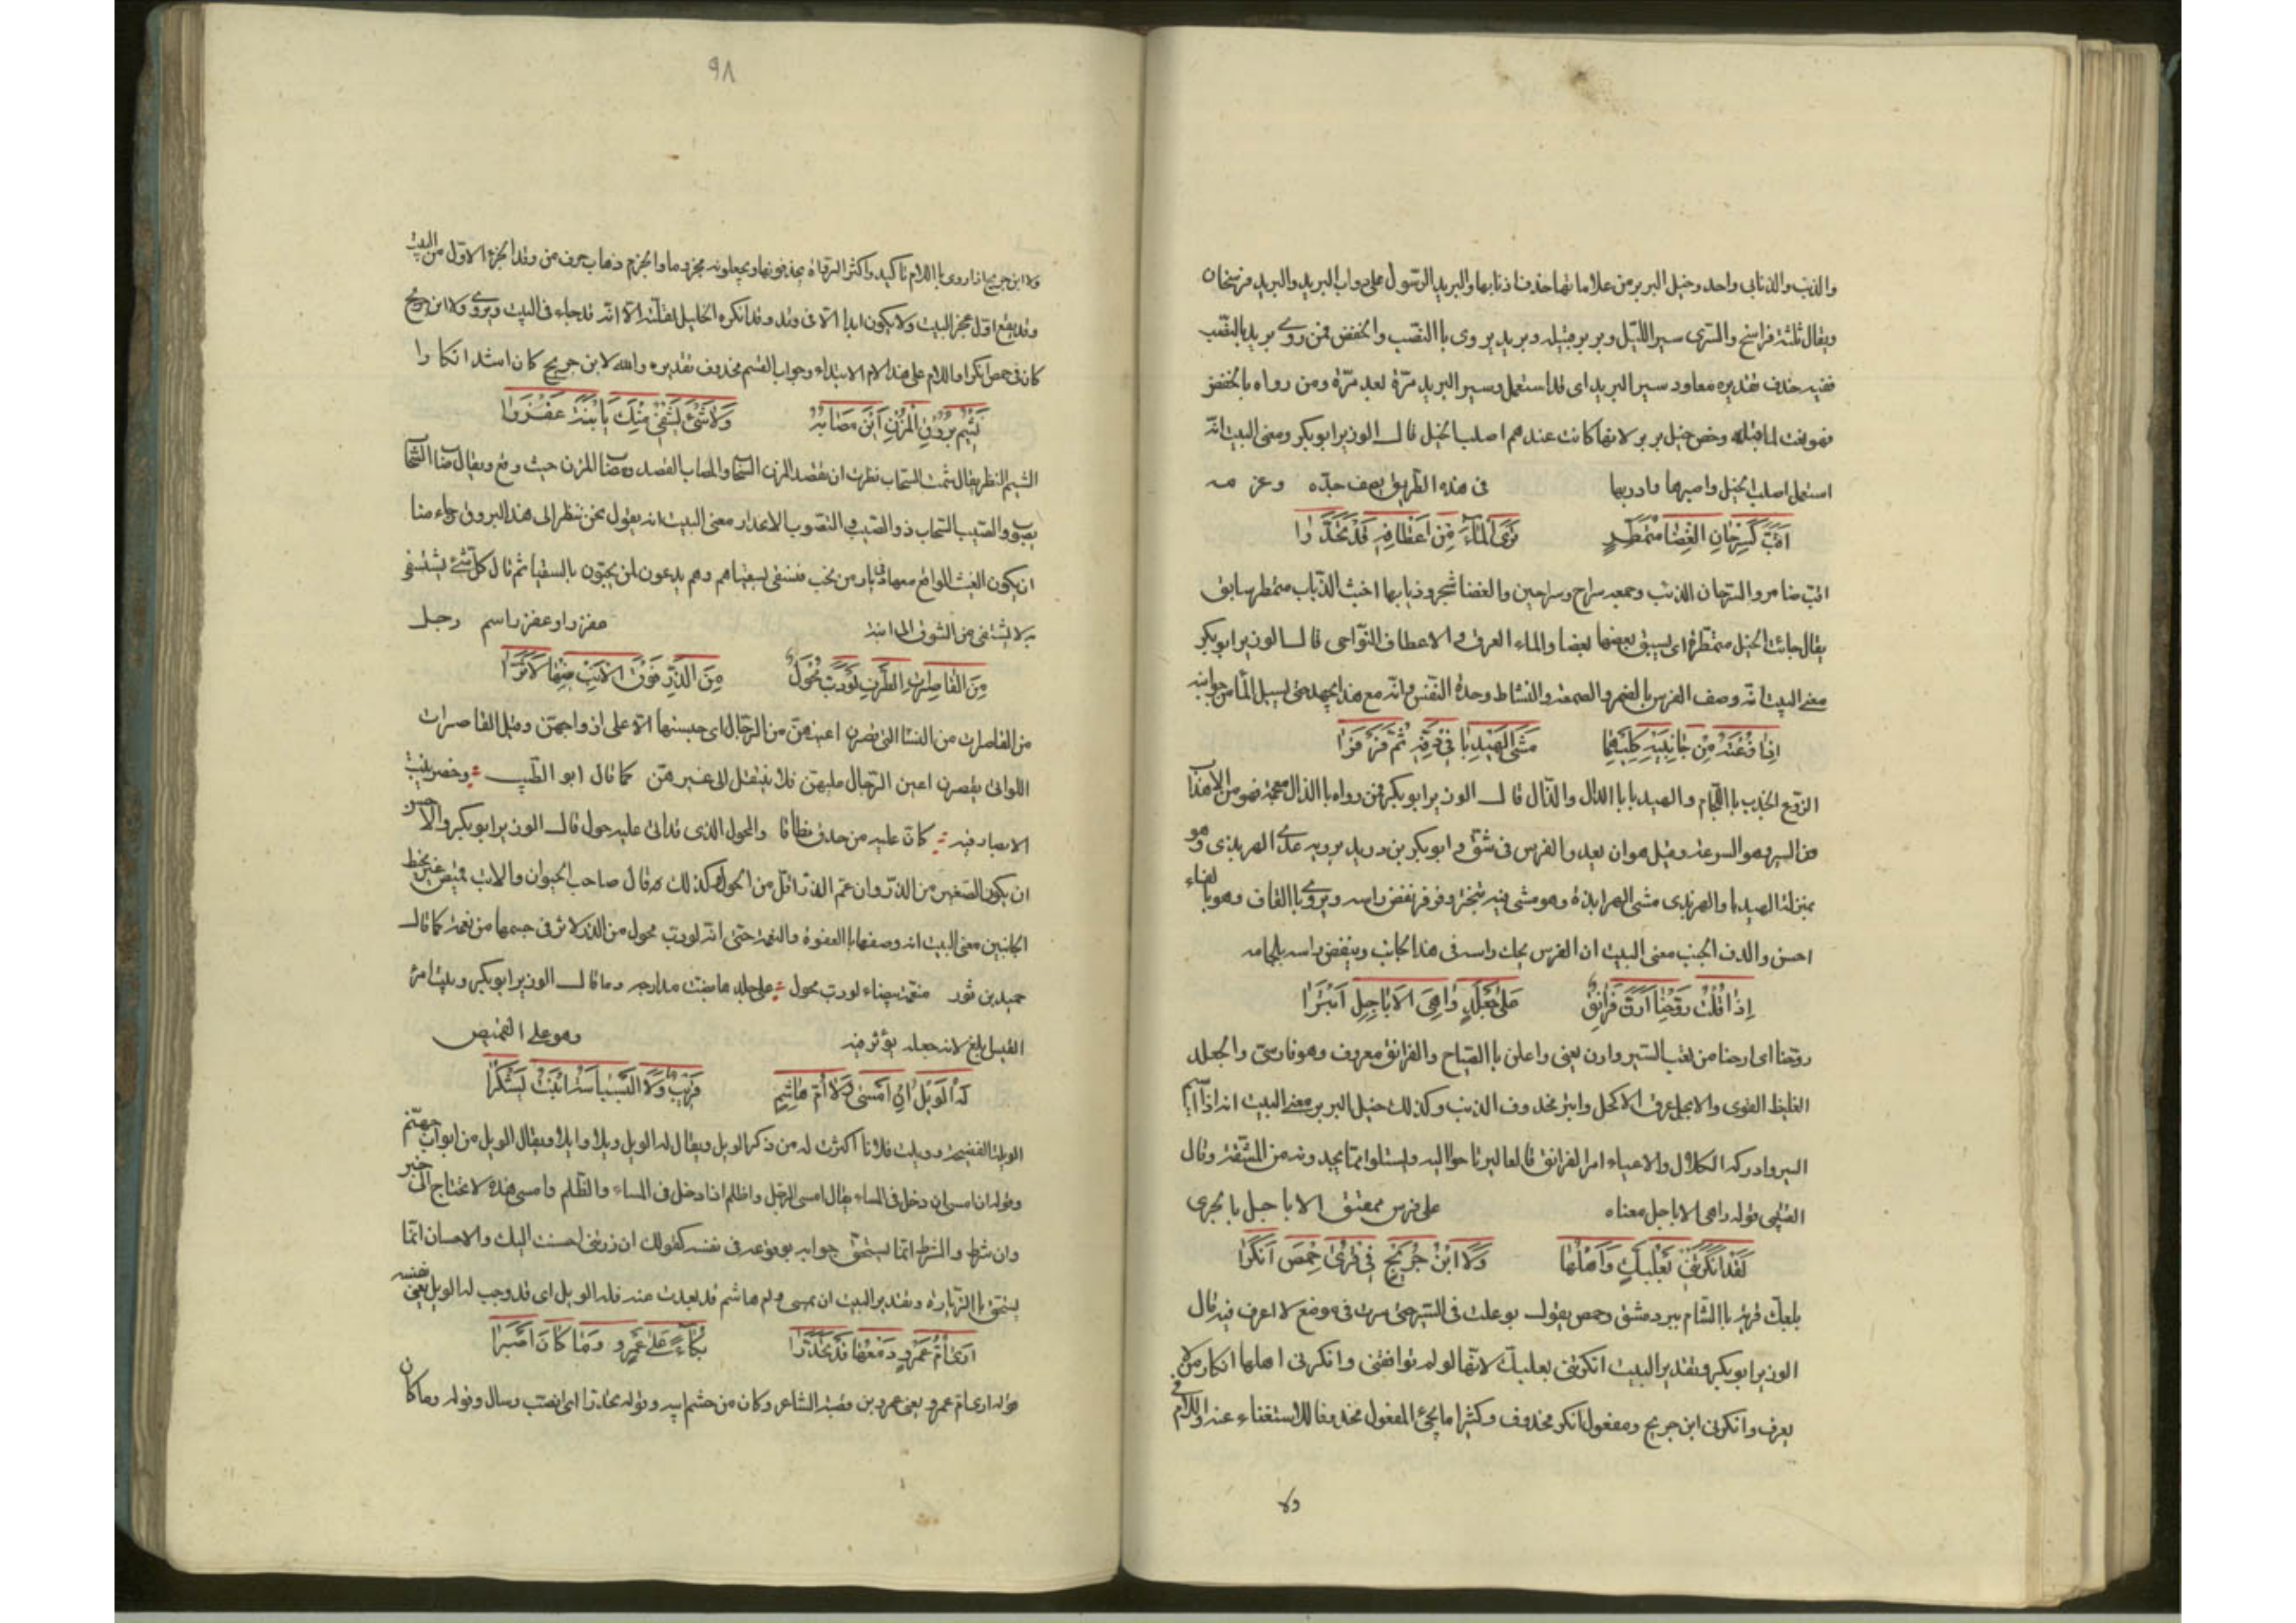 والذنب والذنابى واحد وخيل البربر من علاماتها حذف اذنابها والبريد الرسول على دواب البريد والبريد فرسخان
ويقال ثلثة فراسخ والسرى سير الليل وبربر قبيله وبريد يروى باالنصب والخفض فمن روى بريد بالنصب
ففيه حذف تقديره معاود سير البريد اى قد استعمل وسير البريد مرّة بعد مرّة ومن رواه بالخفض
فهو نعت لما قبله وخص خيل بربر لانها كانت عندهم اصلب الخيل قال الوزير ابوبكر ومعنى البيت انه
استعمل اصلب الخيل واصبرها وادربها في هذه الطريق يصف جدّه وعزمه
اقبّ كسرحان الغضا متمطّر ترى الماء من اعطافه قد تحدّرا
اقب ضامر والسرحان الذئب وجمعه سراح وسراحين والغضا شجر وذيابها اخبث الذياب متمطر سابق
يقال جائت الخيل متمطرة اى يسبق بعضها بعضا والماء العرق والاعطاف النواحى قال الوزير ابوبكر
معنى البيت انه وصف الفرس بالضمر والصمعة والنشاط وحدة النفس وانه مع هذا يجهد حتى يسيل الماء من جوانبه
اذا زعته من جانبيه كليهما مشى الهيدبا في دفه ثم فرفرا
الزوع الجذب باللجام والهيدبا با الدال والذال قال الوزير ابوبكر فمن رواه باالذال معجمة فهو من الاهذاب
من السير وهو السرعة وقيل هو ان يعدو الفرس في شق و ابو بكر بن دريد يرويه على الهربذى وهو
بمنزلة الهيدبا والهربذى مشى الهرابذة وهو مشى فيه تبختر وفرفر نفض راسه ويروى باالقاف وهو بالفاء
احسن والدف الجنب معنى البيت ان الفرس يحك راسه في هذا الجانب وينفض راسه بلجامه
اذا قلت روّحنا ارنّ فرانق على جلعد واهى الاباجل ابترا
روّحنا اى ارحنا من تعب السير وارن يعنى واعلن باالصياح والفرانق معروف وهو فارسى والجلعد
الغليظ القوى والابجل عرق الاكحل وابتر محذوف الذنب وكذلك خيل البربر معنى البيت انه اذا
السير وادركه الكلال والاعياء امر الفرانق قالعا ليرتاحوا اليه وليسلوا مما يجدونه من المشقة وقال
القتيبى قوله واهى الاباجل معناه على فرس ممعنق الاباجل بالجرى
لقد انكرتنى بعلبك واهلها ولا ابن جريج في قرى حمص انكرا
بعلبك قرية باالشام بين دمشق وحمص يقول بوعلت في السير حتى صرت في موضع لا اعرف فيه قال
الوزير ابوبكر وتقدير البيت انكرتنى بعلبك لانها لم توافقنى وانكرنى اهلها انكار من لا
يعرف وانكرنى ابن جريج ومفعول انكر محذوف وكثيرا ما يجئ المفعول محذوفا للاستغناء عنه واللام في
ولا
٩٨
ولا ابن جريج اذا روى باللام تاكيد واكثر الرواة يحذفونها ويجعلونه مخروما والخرم ذهاب حرف من وتد الجزء الاول من البيت
وقد يقع اول عجز البيت ولا يكون ابدا الا في وتد وقد انكره الخليل لقلته الا انه قد جاء في البيت ويروى ولا ابن جريج
كان في حمص انكرا واللام على هذا لام الابتداء وجواب القسم محذوف تقديره والله لابن جريج كان اشد انكارا
نشيم بروق المزن اين مصابه ولا شئ يشفى منك يا ابنة عفزرا
الشيم النظر يقال شمت السحاب نظرت اين تقصد المزن السحاب والمصاب القصد وصاب المزن حيث وقع ويقال صاب السحاب
يصوب والصيب السحاب ذو الصيب والتصوب الانحدار معنى البيت انه يقول نحن ننظر الى هذا البروق رجاء منا
ان يكون الغيث الواقع معها في ديار من نحب فنشفى بسقياهم وهم يدعون لمن يحبون بالسقيا ثم قال كل شئ يستشفى
به لا يشفى من الشوق الى ابنة عفزرا وعفزر اسم رجل
من القاصرات الطرف لو دبّ محول من الذرّ فوق الاتب منها لاثّرا
من القاصرات من النسا التى يقصرن اعينهن من الرجال اى حبسنها الا على ازواجهن وقيل القاصرات
اللواتى يقصرن اعين الرجال عليهن فلا ينتقل الى غيرهن كما قال ابو الطيب وخصر تثبت
الابصار فيه كان عليه من حدق نطاقا والمحول الذى قد اتى عليه حول قال الوزير ابوبكر والاحسن
ان يكون الصغير من الذر وان عمر الذر اقل من الحول وكذلك قال صاحب الحيوان والاتب قميص غير مخيط
الجانبين معنى البيت انه وصفها باالعفوة والنعمة حتى انه لو دب محول من الذر لاثر في جسمها من نعمة كما قال
حميد بن ثور منعمة بيضاء لو دب محول على جلدها بضت مدارجه دما قال الوزير ابوبكر وبيت امرئ
القيس ابلغ لانه جعله يؤثر فيه وهو على القميص
له الويل ان امسى ولا امّ هاشم قريب ولا البسباسة ابنة يشكرا
الويل الفضيحة وويلت فلانا اكثرت له من ذكر الويل ويقال له الويل ويلا وايلا ويقال الويل من ابواب جهنم
وقوله ان امسى ان دخل في المساء يقال امسى الرجل واظلم اذا دخل في المساء والظلم وامسى هذه لا تحتاج الى خبر
وان شرط والشرط انما يستحق جوابه بوقوعه في نفسه كقولك ان زرتنى احسنت اليك والاحسان انما
يستحق باالزيارة وتقدير البيت ان يمسى وام هاشم قد بعدت عنه فله الويل اى قد وجب له الويل يعنى نفسه
ارى امّ عمرو دمعها قد تحدّرا بكاء على عمرو وما كان اصبرا
قوله ارى ام عمرو يعنى عمرو بن قميئة الشاعر وكان من حشم ابيه وقوله تحدرا اى انصب وسال وقوله وما كان